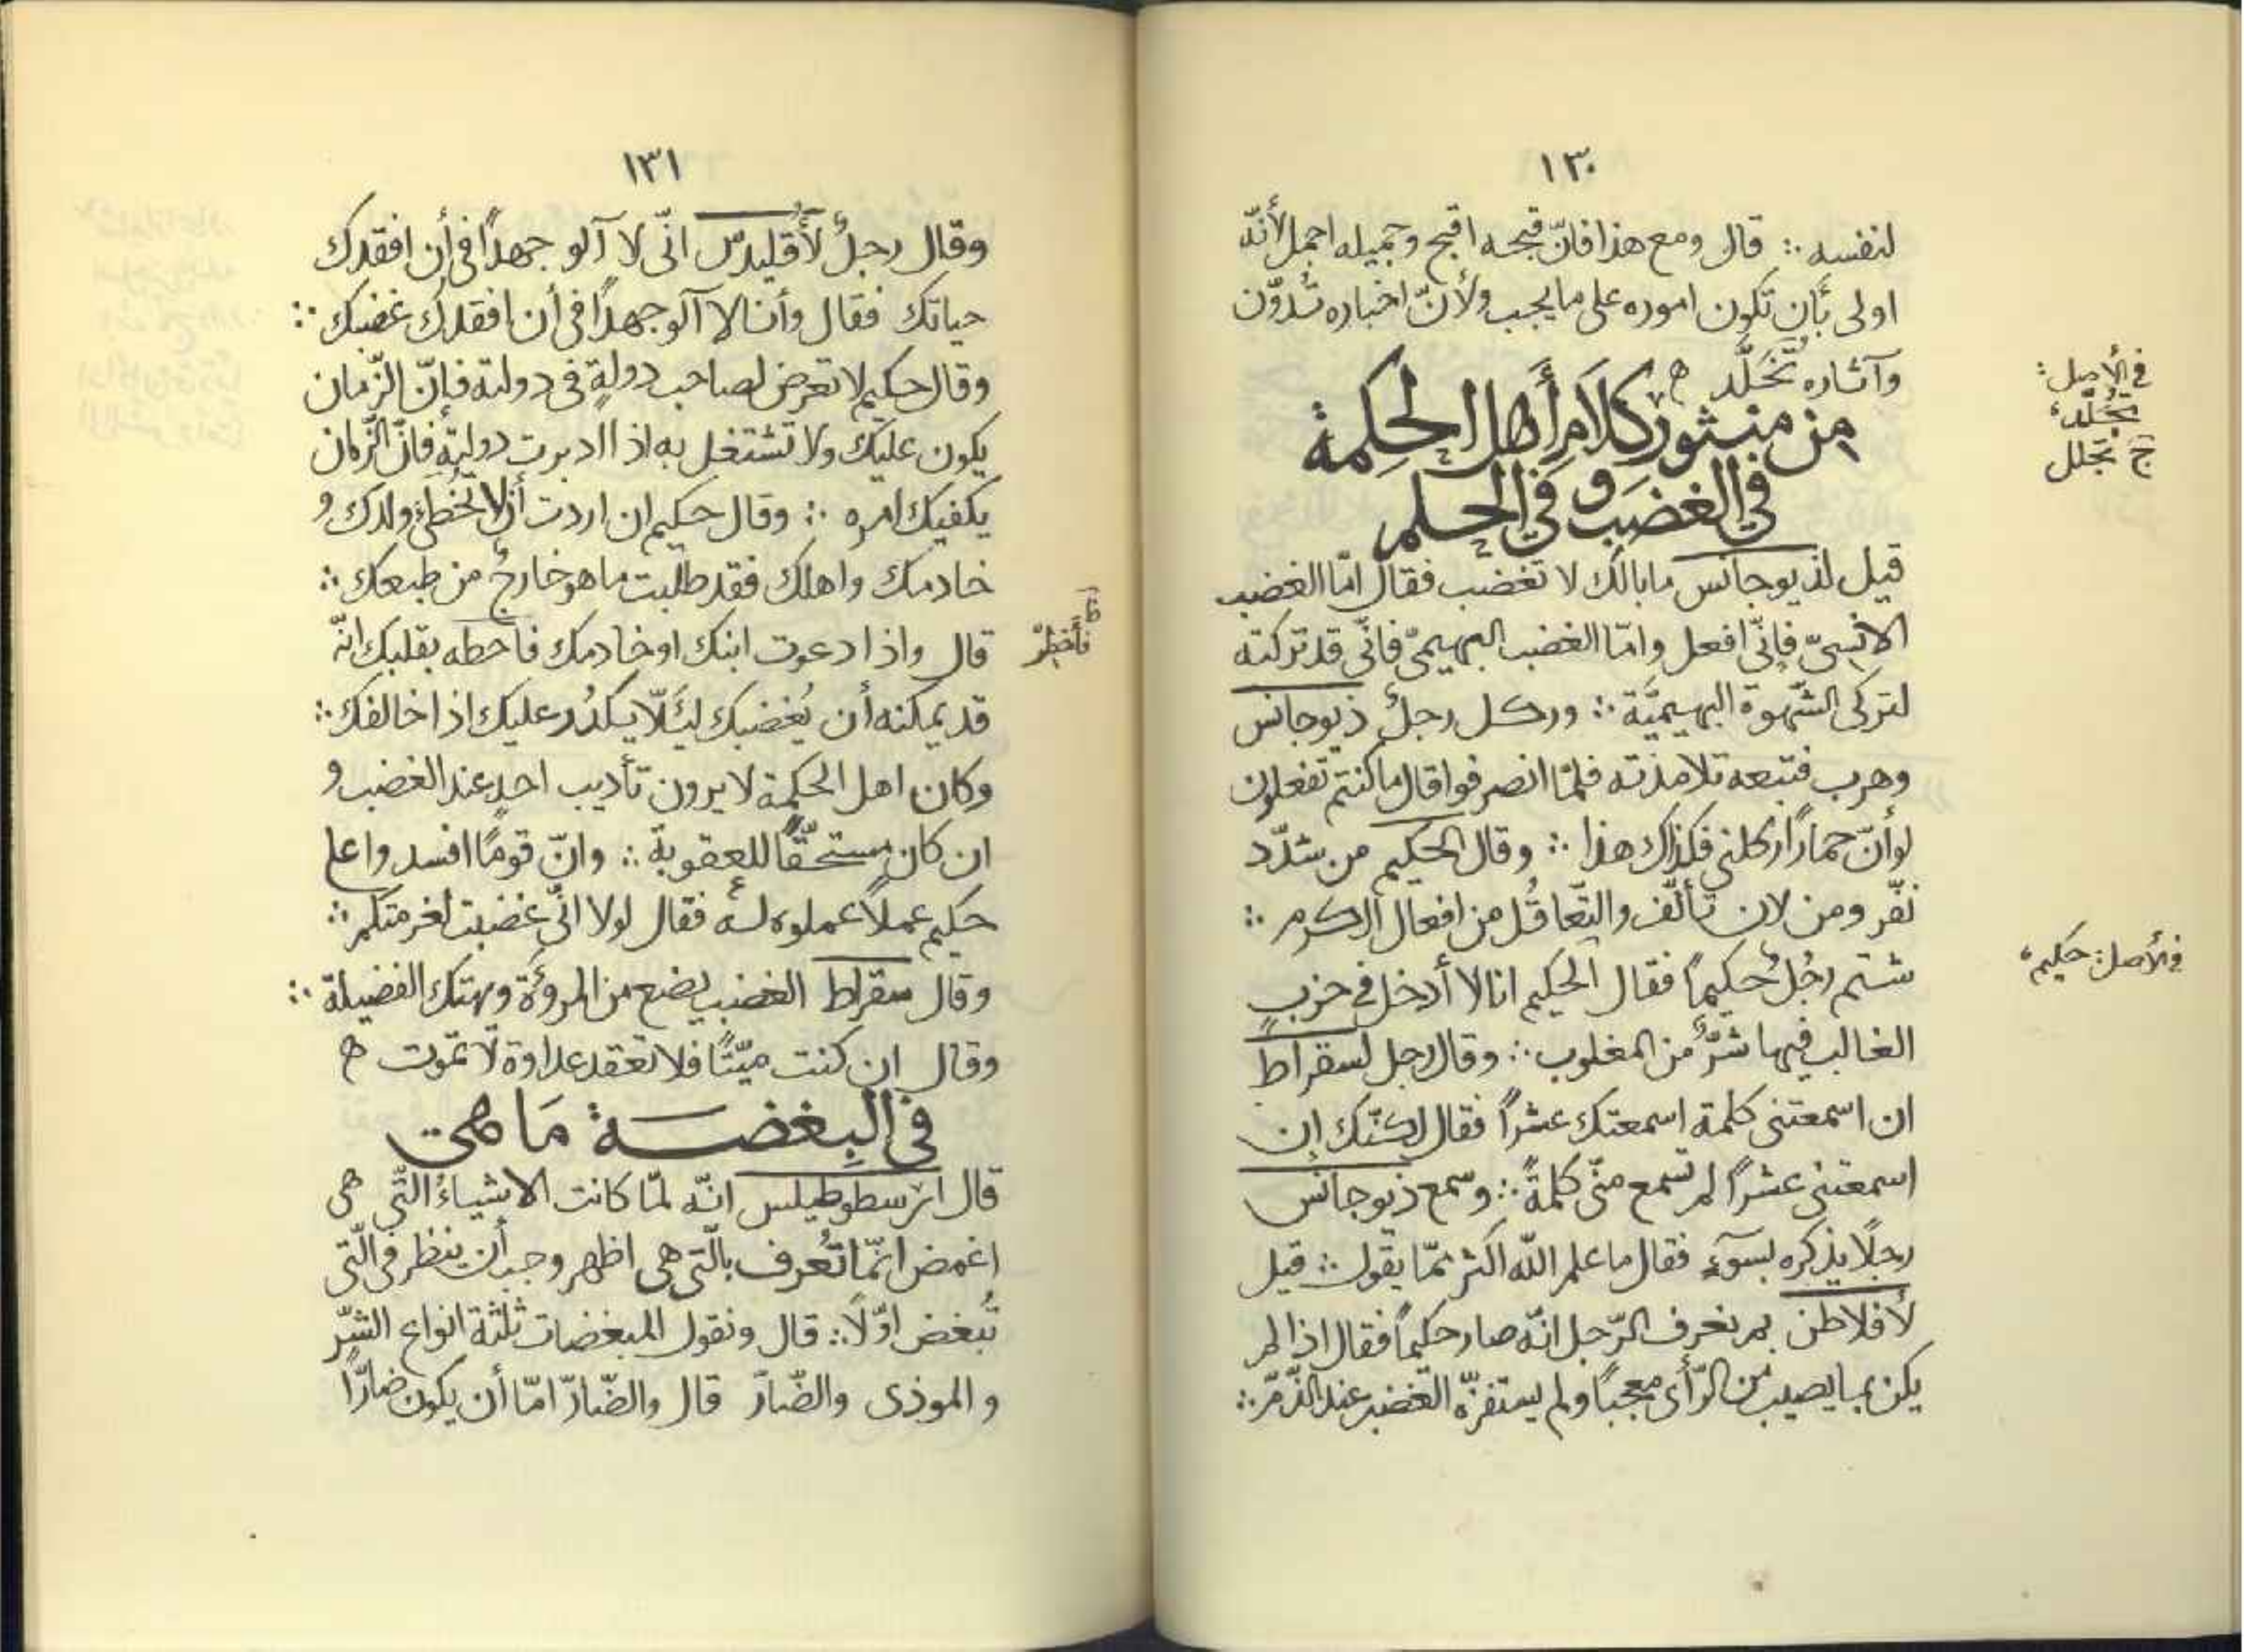 ١٣٠
لنفسه ∴ قال ومع هذا فانّ قبحه اقبح وجميله اجمل لأنّه
اولى بأن تكون اموره على ما يجب ولأنّ اخباره تُدوّن
وآثاره تُخَلَّد ه
من منثور كلَام أَهل الحِكمة
في الغضَب و في الحلم
قيل لذيوجانس ما بالك لا تغضب فقال امّا الغضب
الانسىّ فانّى افعل وامّا الغضب البهيمىّ فانّى قد تركته
لتركى الشّهوة البهيميَّة ∴ وركل رجلٌ ذيوجانس
وهرب فتبعه تلامذته فلمّا انصرفوا قال ما كنتم تفعلون
لو أنّ حمارًا ركلنى فكذاك هذا ∴ وقال الحكيم من شدّد
نفّر ومن لان تألّف والتّغافُل من افعال الكرم ∴
شتم رجُلٌ حكيمًا فقال الحكيم انا لا أدخل فى حزب
الغالب فيها شرٌّ من المغلوب ∴ وقال رجل لسقراط
ان اسمعتنى كلمة اسمعتك عشرًا فقال لكنّك إن
اسمعتنى عشرًا لم تسمع منّى كلمةً ∴ وسمع ذيوجانس
رجلًا يذكره بسوٓءٍ فقال ما علم اللّه اكثر ممّا يقول ∴ قيل
لأفلاطن بم نعرف الرّجل انّه صار حكيمًا فقال اذا لم
يكن بما يصيب من الرّأى معجبًا ولم يستفزّه الغضب عند الذّمّ ∴
في الأصل:
يُخَلّد،
ج تجلل
في الأصل: حكيم،
١٣١
وقال رجلٌ لأُقليدس انّى لا آلو جهدًا فى أن افقدك
حياتك فقال وأنا لا آلو جهدًا فى أن افقدك غضبك ∴
وقال حكيم لا تعرض لصاحب دولةٍ فى دولته فإنّ الزّمان
يكون عليك ولا تشتغل به اذا ادبرت دولته فانّ الزّمان
يكفيك امره ∴ وقال حكيم ان اردت أن لا تخطئ ولدك و
خادمك واهلك فقد طلبت ما هو خارجٌ من طبعك ∴
قال واذا دعوت ابنك او خادمك فاحطه بقلبك انّه
قد يمكنه أن يُغضبك لئَلّا يكدُر عليك اذا خالفك ∴
وكان اهل الحكمة لا يرون تأديب احدٍ عند الغضب و
ان كان مستحقًّا للعقوبة ∴ وانّ قومًا افسدوا على
حكيم عملاً عملوه له فقال لولا انّى غضبت لغرمتكم ∴
وقال سقراط الغضب يضع من المروءَة ويهتك الفضيلة ∴
وقال ان كنت ميّتًا فلا تعقد عداوة لا تموت ه
في البِغضَة مَا هى
قال ارسطوطيلس انّه لمّا كانت الاشياءُ الّتى هى
اغمض انّما تُعرف بالّتى هى اظهر وجب أن ينظر فى الّتى
تُبغض اوّلًا ∴ قال ونقول المبغضات ثلثة انواع الشّرّ
والموذى والضّارّ قال والضّارّ امّا أن يكون ضارًّا
فأَخطِرْ